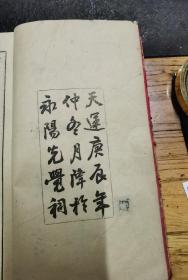 天運庚辰年
仲冬月降於
永陽先覺祠